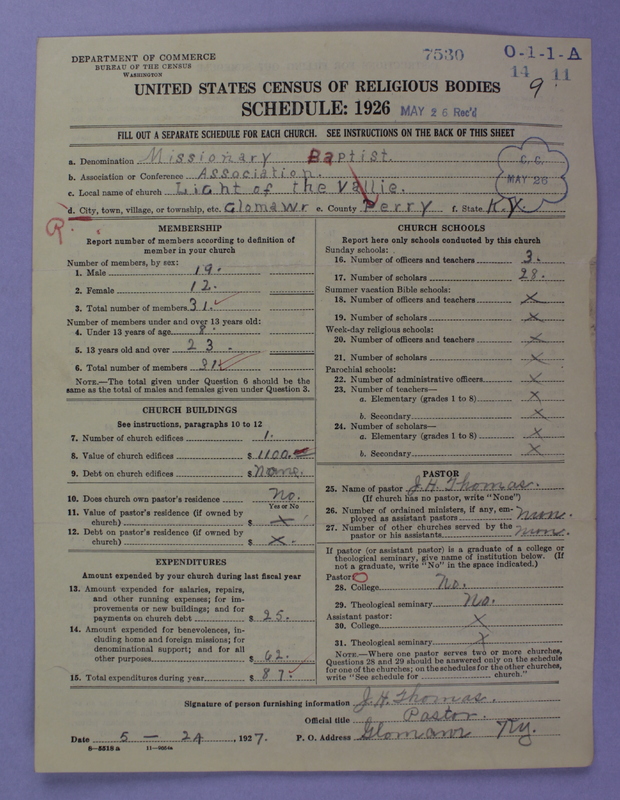 DEPARTMENT OF COMMERCE
BUREAU OF THE CENSUS
WASHINGTON
7530 O-1-1-A
14 11
9
UNITED STATES CENSUS OF RELIGIOUS BODIES
SCHEDULE: 1926 MAY 26 Rec'd
FILL OUT A SEPARATE SCHEDULE FOR EACH CHURCH. SEE INSTRUCTIONS ON THE BACK OF THIS SHEET
a. Denomination Missionary Baptist.
b. Association or Conference Association.
c. Local name of church Light of the Vallie.
C.C. MAY 26
d. City, town, village, or township, etc. Glomawr e. County Perry f. State Ky.
R.
MEMBERSHIP
Report number of members according to definition of member in your church
Number of members, by sex:
1. Male 19.
2. Female 12.
3. Total number of members 31.
Number of members under and over 13 years old:
4. Under 13 years of age 8.
5. 13 years old and over 23.
6. Total number of members 31
NOTE.—The total given under Question 6 should be the same as the total of males and females given under Question 3.
CHURCH BUILDINGS
See instructions, paragraphs 10 to 12
7. Number of church edifices 1.
8. Value of church edifices $ 1100.
9. Debt on church edifices $ None.
10. Does church own pastor's residence No.
Yes or No
11. Value of pastor's residence (if owned by church) $ X
12. Debt on pastor's residence (if owned by church) $ X.
EXPENDITURES
Amount expended by your church during last fiscal year
13. Amount expended for salaries, repairs, and other running expenses; for improvements or new buildings; and for payments on church debt $ 25.
14. Amount expended for benevolences, including home and foreign missions; for denominational support; and for all other purposes $ 62.
15. Total expenditures during year $ 87.
CHURCH SCHOOLS
Report here only schools conducted by this church
Sunday schools:
16. Number of officers and teachers 3.
17. Number of scholars 28.
Summer vacation Bible schools:
18. Number of officers and teachers X
19. Number of scholars X
Week-day religious schools:
20. Number of officers and teachers X
21. Number of scholars X
Parochial schools:
22. Number of administrative officers X
23. Number of teachers—
a. Elementary (grades 1 to 8) X
b. Secondary X
24. Number of scholars—
a. Elementary (grades 1 to 8) X
b. Secondary X
PASTOR
25. Name of pastor J.H. Thomas.
(If church has no pastor, write "None")
26. Number of ordained ministers, if any, employed as assistant pastors non.
27. Number of other churches served by the pastor or his assistants non.
If pastor (or assistant pastor) is a graduate of a college or theological seminary, give name of institution below. (If not a graduate, write "No" in the space indicated.)
Pastor:
28. College No.
29. Theological seminary No.
Assistant pastor:
30. College X
31. Theological seminary X
NOTE.—Where one pastor serves two or more churches, Questions 28 and 29 should be answered only on the schedule for one of the churches; on the schedules for the other churches, write "See schedule for church."
Signature of person furnishing information J.H. Thomas.
Official title Pastor.
Date 5 — 24, 1927. P. O. Address Glomawr Ky.
8-5518a